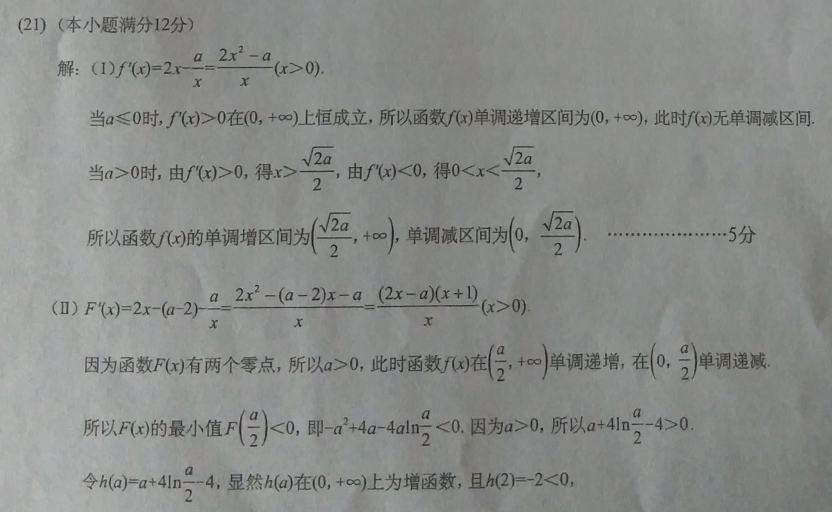 (21)（本小题满分12分）
解：(Ⅰ) f′(x)=2x-a/x=(2x²-a)/x(x>0).
当a≤0时, f′(x)>0在(0, +∞)上恒成立, 所以函数f(x)单调递增区间为(0, +∞), 此时f(x)无单调减区间.
当a>0时, 由f′(x)>0, 得x>√(2a)/2, 由f′(x)<0, 得0<x<√(2a)/2,
所以函数f(x)的单调增区间为(√(2a)/2, +∞), 单调减区间为(0, √(2a)/2). ·····················5分
(Ⅱ) F′(x)=2x-(a-2)-a/x=(2x²-(a-2)x-a)/x=((2x-a)(x+1))/x(x>0).
因为函数F(x)有两个零点, 所以a>0, 此时函数f(x)在(a/2, +∞)单调递增, 在(0, a/2)单调递减.
所以F(x)的最小值F(a/2)<0, 即-a²+4a-4aln a/2<0. 因为a>0, 所以a+4ln a/2-4>0.
令h(a)=a+4ln a/2-4, 显然h(a)在(0, +∞)上为增函数, 且h(2)=-2<0,